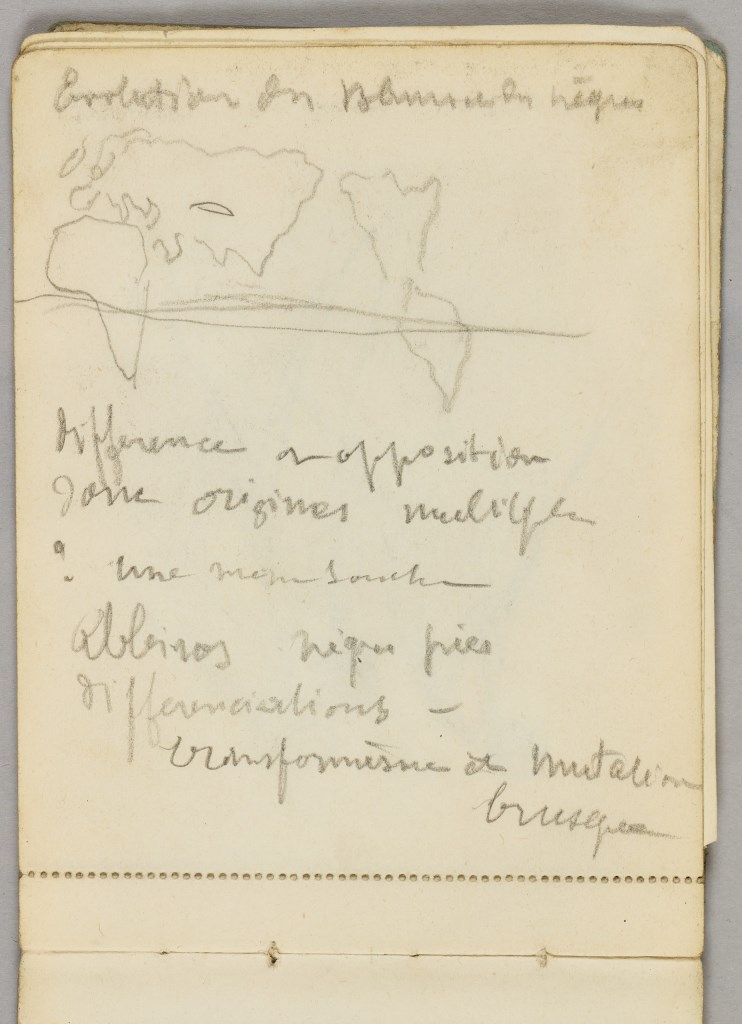 Evolution des Blancs des nègres
Difference ou opposition
Donc origines multiples
? une meme souche
Albinos nègres pies
Differenciations –
transformisme et mutation
brusque